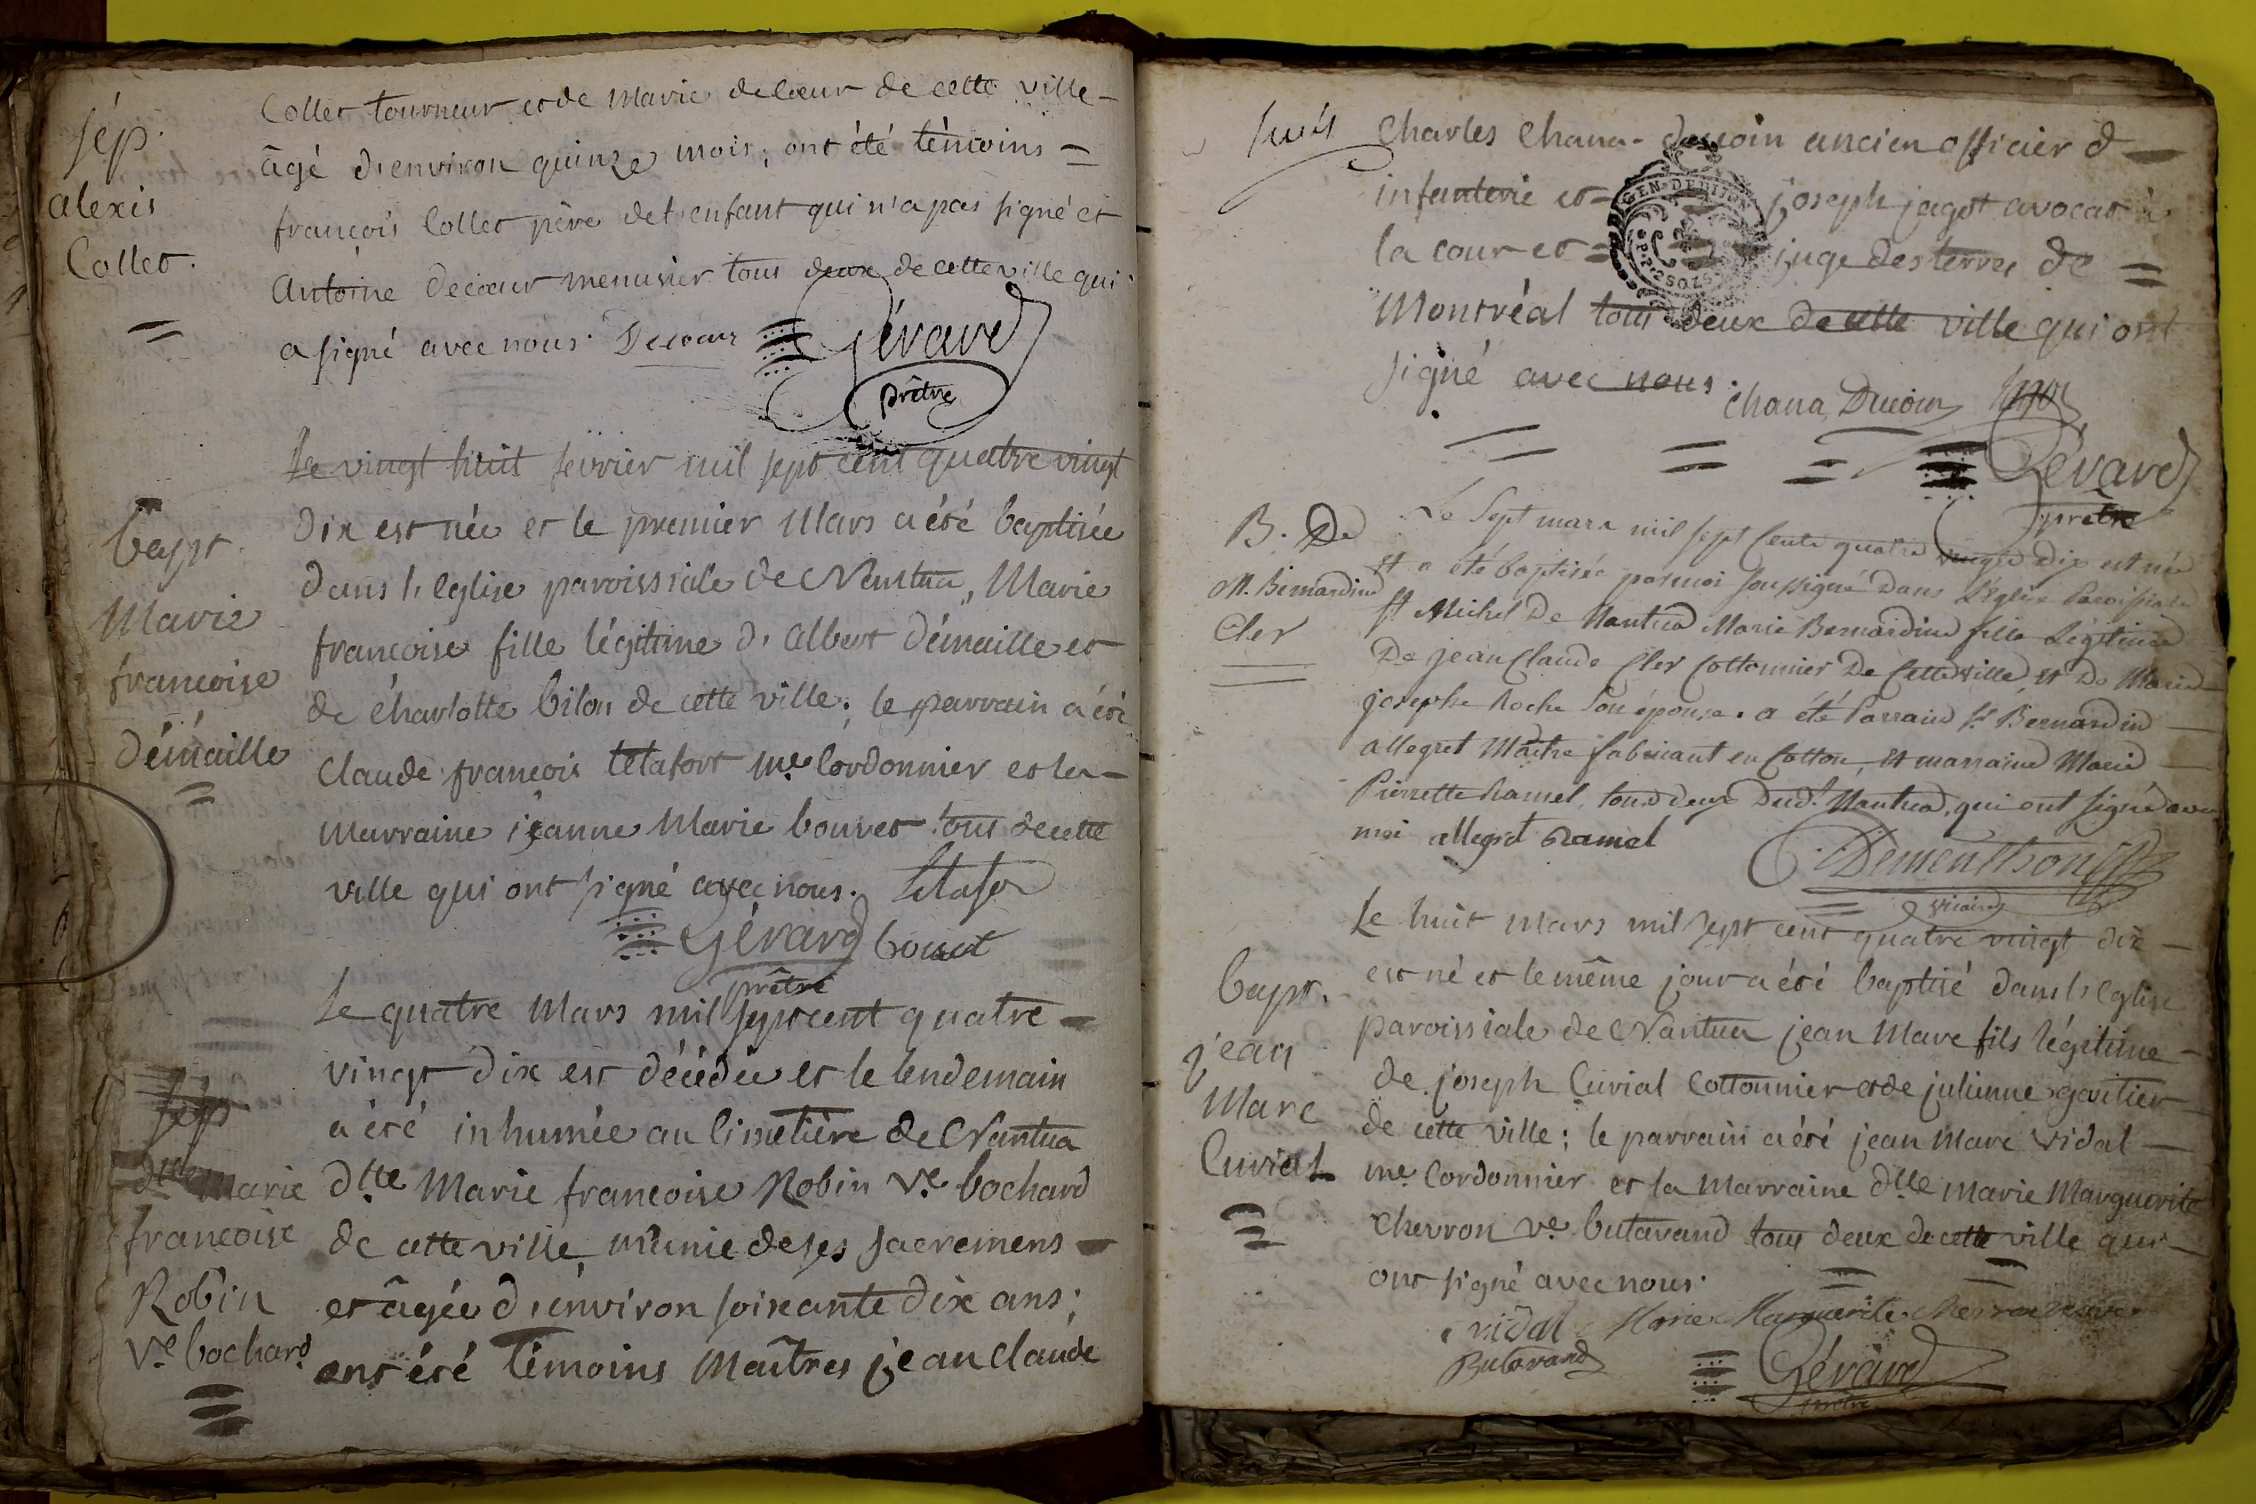 sép.
alexis
Collet.
Collet tourneur et de Marie decœur de cette ville
âgé d'environ quinze mois; ont été témoins
françois Collet père de l'enfant qui n'a pas signé et
Antoine decœur menusier tous deux de cette ville qui
a signé avec nous. Decœur Gérard
prêtre
bapt.
Marie
francoise
Démaille
Le vingt huit fevrier mil sept cent quatre vingt
dix est née et le premier Mars a été baptisée
dans l'église paroissiale de Nantua, Marie
francoise fille légitime d'Albert Démaille et
de Charlotte bilon de cette ville; le parrain a été
Claude françois Létafort me. Cordonnier et la
marraine jeanne Marie bouvet tous de cette
ville qui ont signé avec nous.
Gérard bouvet
prêtre
sép
dlle Marie
francoise
Robin
Ve. bochard
Le quatre Mars mil sept cent quatre
vingt dix est décédée et le lendemain
a été inhumée au Cimetière de Nantua
dlle Marie francoise Robin Ve. bochard
de cette ville, munie de ses sacremens
et âgée d'environ soixante dix ans;
ont été témoins Maîtres jean Claude
Charles Chana ancien officier d
infanterie et joseph jagot avocat à
la cour et juge des terres de
Montréal tous deux de cette ville qui ont
signé avec nous.
Chana
Gérard
prêtre
B. De
M. Bernardine
Cler
Le Sept mars mil sept Cents quatre vingt Dix est née
et a été baptisée par moi soussigné Dans l'Eglise Paroissiale
St Michel De Nantua Marie Bernardine fille Légitime
De jean Claude Cler Cottonnier De Cette ville, et De Marie
josephe Roche son épouse. a été Parrain Sr Bernardin
allegret Maitre fabricant en Cotton, et marraine Marie
Pierrette hamel, tous deux Dud. Nantua, qui ont signé avec
moi allegret
vicaire
bapt.
jean
Marc
Cuvial
Le huit Mars mil sept cent quatre vingt dix
est né et le même jour a été baptisé dans l'église
paroissiale de Nantua jean Marc fils légitime
de joseph Cuvial Cottonnier et de julienne gautier
de cette ville; le parrain a été jean Marc vidal
me. Cordonnier et la Marraine dlle Marie Marguerite
Chevron Ve. butavand tous deux de cette ville qui
ont signé avec nous.
vidal Marie Marguerite Chevron veuve
Butavand Gérard
prêtre